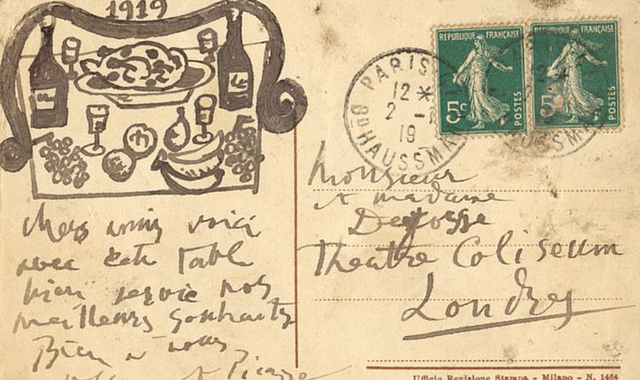 1919
Chers amis voici
avec cette table
bien servie nos
meilleurs souhaits
Bien a vous
et Picasso
REPUBLIQUE FRANÇAISE
5c
POSTES
REPUBLIQUE FRANÇAISE
5c
POSTES
PARIS
12 *
2 -1
19
Bd HAUSSMA
Monsieur
et madame
Deyosse
Theatre Coliseum
Londres
Ufficio Revisione Stampa - Milano - N. 1464